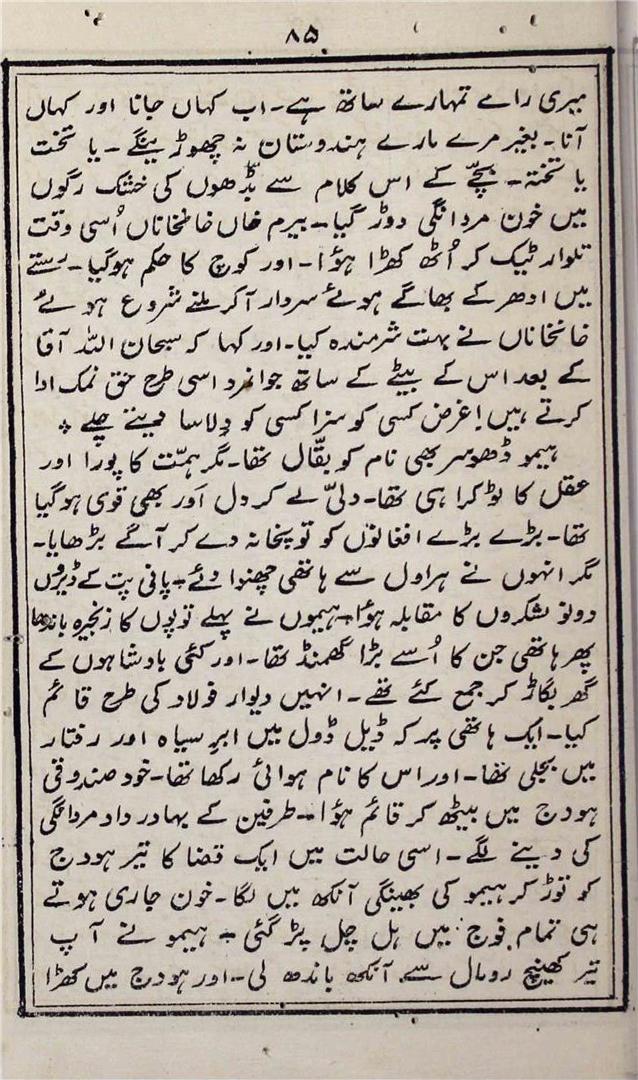 ۸۵
میری راے تمہارے ساتھ ہے۔ اب کہاں جانا اور کہاں
آنا۔ بغیر مرے مارے ہندوستان نہ چھوڑینگے۔ یا تخت
یا تختہ۔ بچّے کے اس کلام سے بڈھوں کی خشک رگوں
میں خون مردانگی دوڑ گیا۔ بیرم خاں خانخاناں اُسی وقت
تلوار ٹیک کر اُٹھ کھڑا ہؤا۔ اور کوچ کا حکم ہوگیا۔ رستے
میں ادھر کے بھاگے ہوئے سردار آکر ملنے شروع ہوئے
خانخاناں نے بہت شرمندہ کیا۔ اور کہا کہ سبحان اللہ آقا
کے بعد اس کے بیٹے کے ساتھ جوانمرد اسی طرح حق نمک ادا
کرتے ہیں! غرض کسی کو سزا کسی کو دلاسا دیتے چلے ٭
ہیمو ڈھوسر بھی نام کو بقّال تھا۔ مگر ہمّت کا پورا اور
عقل کا لوکرا ہی تھا۔ دلیّ لے کر دل اَور بھی قوی ہوگیا
تھا۔ بڑے بڑے افغانوں کو توپخانہ دے کر آگے بڑھایا۔
مگر انہوں نے ہراول سے ہاتھی چھنوا دئے۔ پانی پت کے ڈیروں
دونو لشکروں کا مقابلہ ہؤا۔ ہیموں نے پہلے توپوں کا زنجیرہ باندھا
پھر ہاتھی جن کا اُسے بڑا گھمنڈ تھا۔ اور کئی بادشاہوں کے
گھر بگاڑ کر جمع کئے تھے۔ انہیں دیوار فولاد کی طرح قائم
کیا۔ ایک ہاتھی پر کہ ڈیل ڈول میں ابر سیاہ اور رفتار
میں بجلی تھا۔ اور اس کا نام ہوائی رکھا تھا۔ خود صندوقی
ہودج میں بیٹھ کر قائم ہؤا۔ طرفین کے بہادر داد مردانگی
کی دینے لگے۔ اسی حالت میں ایک قضا کا تیر ہودج
کو توڑ کر ہیمو کی بھینگی آنکھ میں لگا۔ خون جاری ہوتے
ہی تمام فوج میں ہل چل پڑ گئی۔ ہیمو نے آپ
تیر کھینچ رومال سے آنکھ باندھ لی۔ اور ہودج میں کھڑا